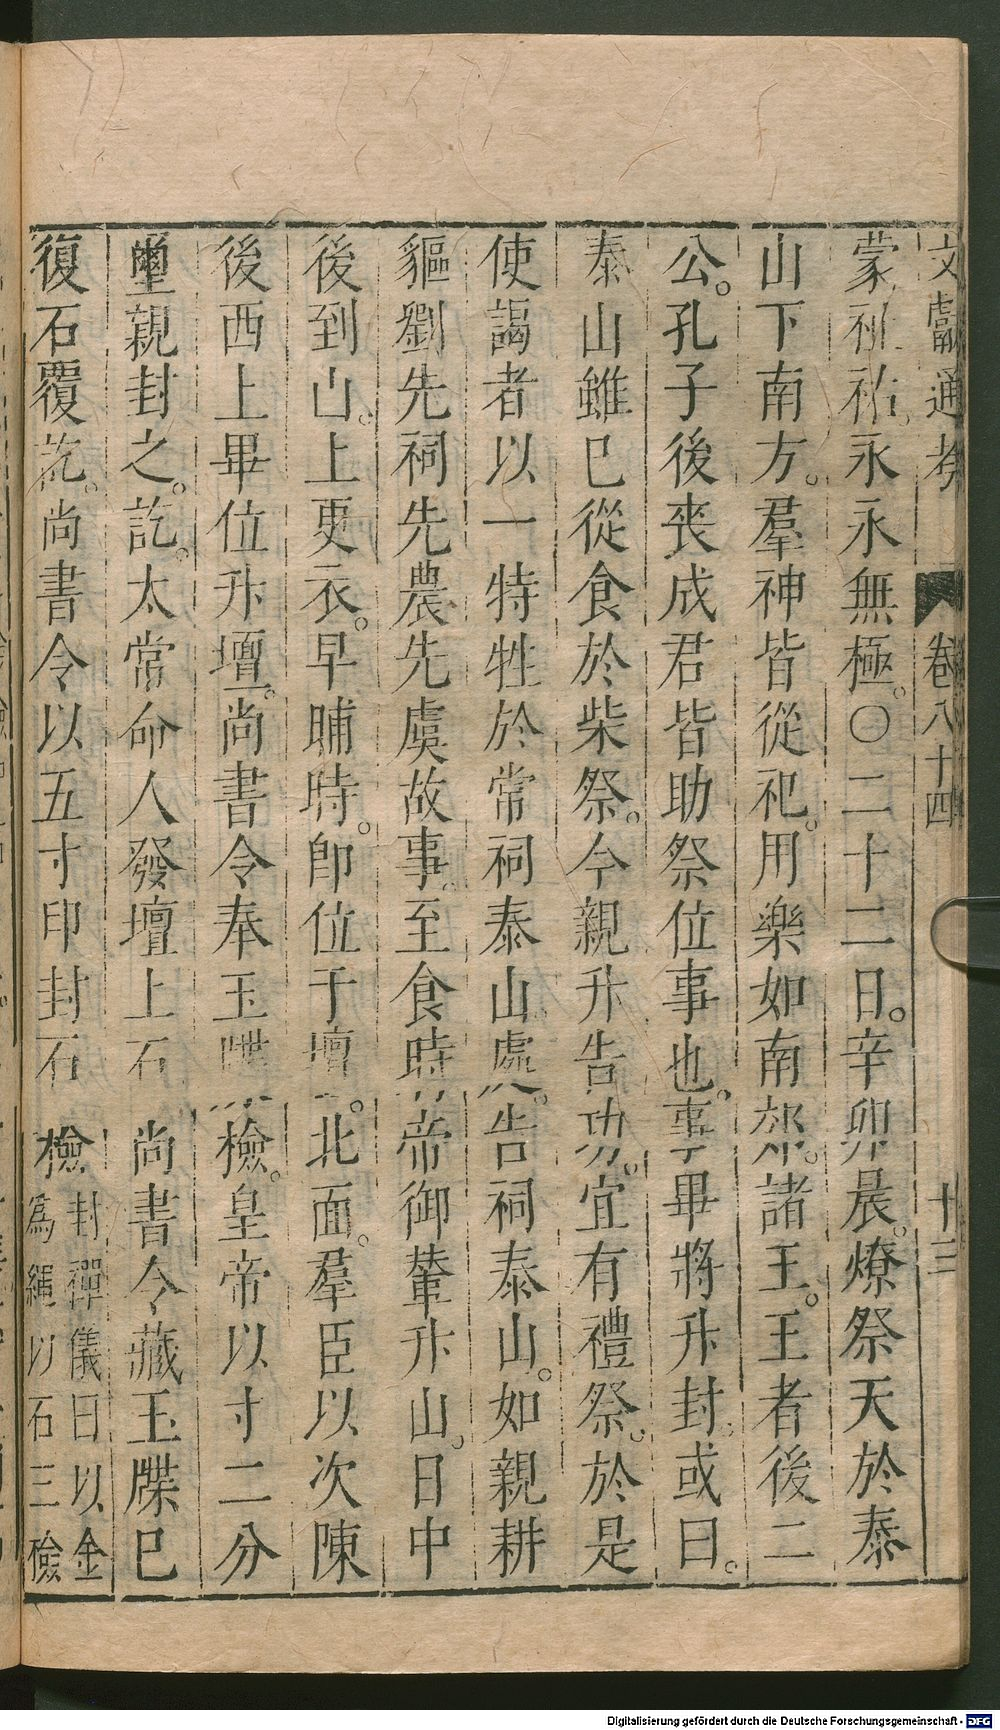 文獻通考 卷八十四 十三
蒙祉祐。永永無極。〇二十二日。辛卯晨。燎祭天於泰
山下南方。羣神皆從祀。用樂如南郊。諸王。王者後二
公。孔子後褒成君皆助祭位事也。事畢將升封。或曰。
泰山雖已從食於柴祭。今親升告功。宜有禮祭。於是
使謁者以一特牲於常祠泰山處。告祠泰山。如親耕
貙劉先祠先農先虞故事。至食時。帝御輦升山。日中
後到山。上更衣。早晡時。卽位于壇。北面。羣臣以次陳
後西上畢位升壇。尚書令奉玉牒檢。皇帝以寸二分
璽親封之。訖。太常命人發壇上石。尚書令藏玉牒已
復石覆訖。尚書令以五寸印封石檢封禪儀曰以金
爲繩以石三檢
Digitalisierung gefördert durch die Deutsche Forschungsgemeinschaft - DFG